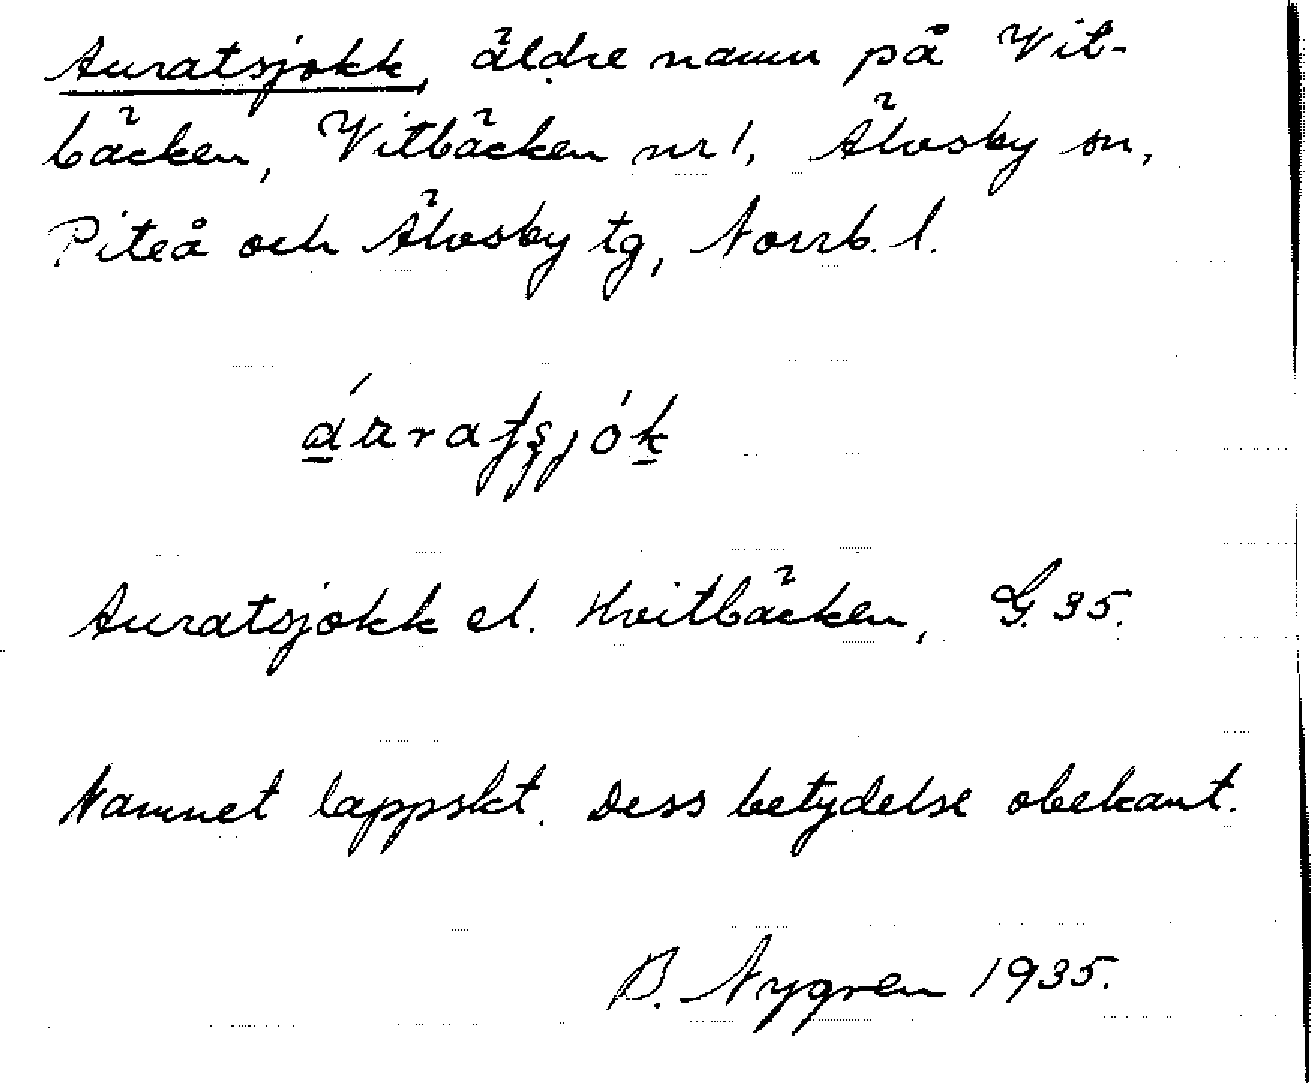 Auratsjokk, äldre namn på Vit-
bäcken, Vitbäcken nr 1, Älvsby sn,
Piteå och Älvsby tg, Norrb. l.
Auratsjokk el. Hvitbäcken, G. 35.
Namnet lappskt. Dess betydelse obekant.
B. Nygren 1935.